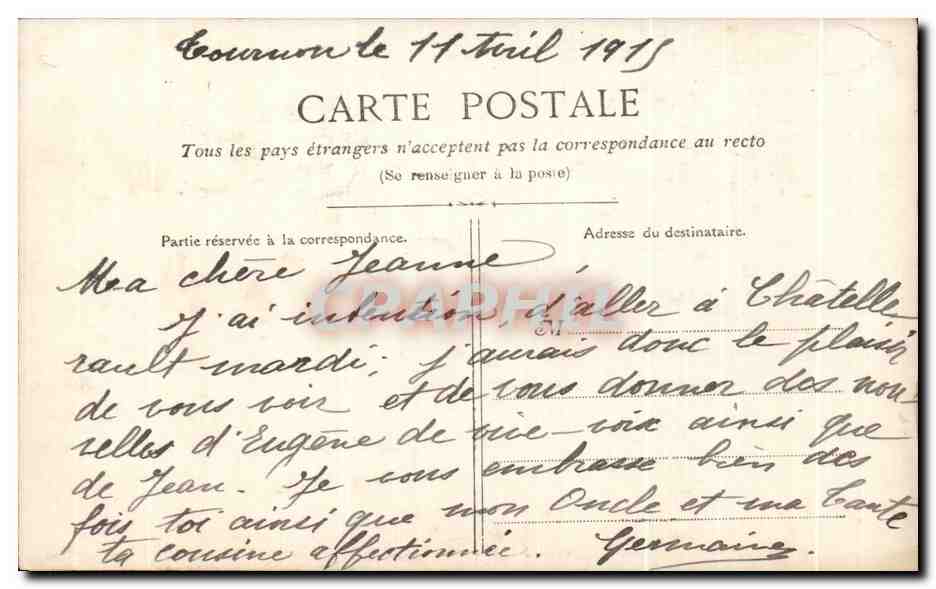 Tournon le 11 Avril 1915
CARTE POSTALE
Tous les pays étrangers n'acceptent pas la correspondance au recto
(Se renseigner à la poste)
Partie réservée à la correspondance.
Adresse du destinataire.
Ma chère Jeanne,
CPAPHIL
M
J'ai intention, d'aller à Châtelle
rault mardi; j'aurais donc le plaisir
de vous voir et de vous donner des nou-
velles d'Eugène de vive-voix ainsi que
de Jean. Je vous embrasse bien des
fois toi ainsi que mon Oncle et ma Tante
ta cousine affectionnée. Germaine.